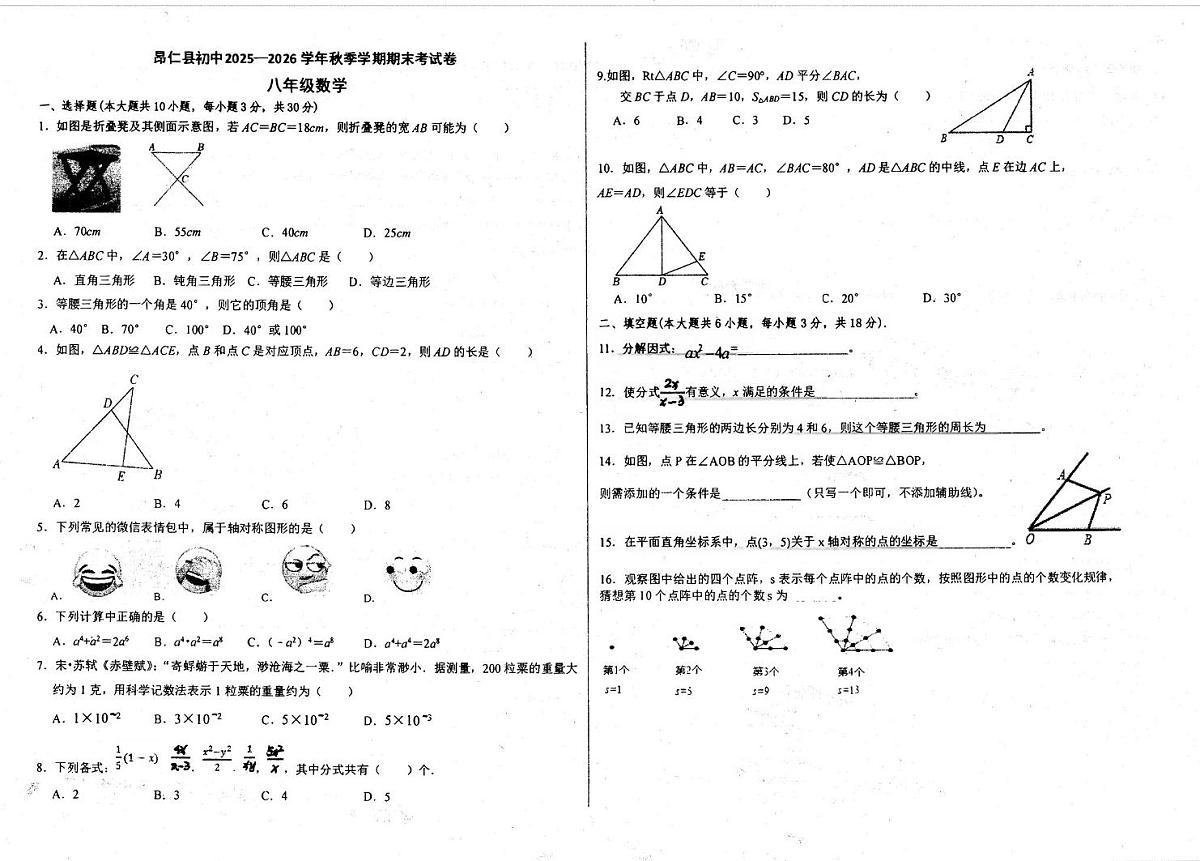 昂仁县初中2025—2026学年秋季学期期末考试卷
八年级数学
一、选择题(本大题共10小题，每小题3分，共30分)
1．如图是折叠凳及其侧面示意图，若AC=BC=18cm，则折叠凳的宽AB可能为（　　）
A B
C
A．70cm B．55cm C．40cm D．25cm
2．在△ABC中，∠A=30°，∠B=75°，则△ABC是（　　）
A．直角三角形 B．钝角三角形 C．等腰三角形 D．等边三角形
3．等腰三角形的一个角是40°，则它的顶角是（　　）
A．40° B．70° C．100° D．40°或100°
4．如图，△ABD≌△ACE，点B和点C是对应顶点，AB=6，CD=2，则AD的长是（　　）
C
D
A
E B
A．2 B．4 C．6 D．8
5．下列常见的微信表情包中，属于轴对称图形的是（　　）
A. B. C. D.
6．下列计算中正确的是（　　）
A．a⁴+a²=2a⁶ B．a⁴•a²=a⁸ C．(﹣a²)⁴=a⁸ D．a⁴+a⁴=2a⁸
7．宋•苏轼《赤壁赋》：“寄蜉蝣于天地，渺沧海之一粟．”比喻非常渺小．据测量，200粒粟的重量大
约为1克，用科学记数法表示1粒粟的重量约为（　　）
A．1×10⁻² B．3×10⁻² C．5×10⁻² D．5×10⁻³
8．下列各式：1/5(1﹣x) , x²−y²/2 , ，其中分式共有（　　）个．
A．2 B．3 C．4 D．5
9.如图，Rt△ABC中，∠C=90°，AD平分∠BAC,
交BC于点D，AB=10，S△ABD=15，则CD的长为（　　）
A．6 B．4 C．3 D．5
A
B D C
10．如图，△ABC中，AB=AC，∠BAC=80°，AD是△ABC的中线，点E在边AC上，
AE=AD，则∠EDC等于（　　）
A
E
B D C
A．10° B．15° C．20° D．30°
二、填空题(本大题共6小题，每小题3分，共18分)．
11．分解因式：ax²−4a=______。
12．使分式2x/x−3有意义，x满足的条件是______。
13．已知等腰三角形的两边长分别为4和6，则这个等腰三角形的周长为______。
14．如图，点P在∠AOB的平分线上，若使△AOP≌△BOP，
则需添加的一个条件是______（只写一个即可，不添加辅助线）。
A
P
O B
15．在平面直角坐标系中，点(3，5)关于x轴对称的点的坐标是______。
16．观察图中给出的四个点阵，s表示每个点阵中的点的个数，按照图形中的点的个数变化规律，
猜想第10个点阵中的点的个数s为______。
第1个 第2个 第3个 第4个
s=1 s=5 s=9 s=13